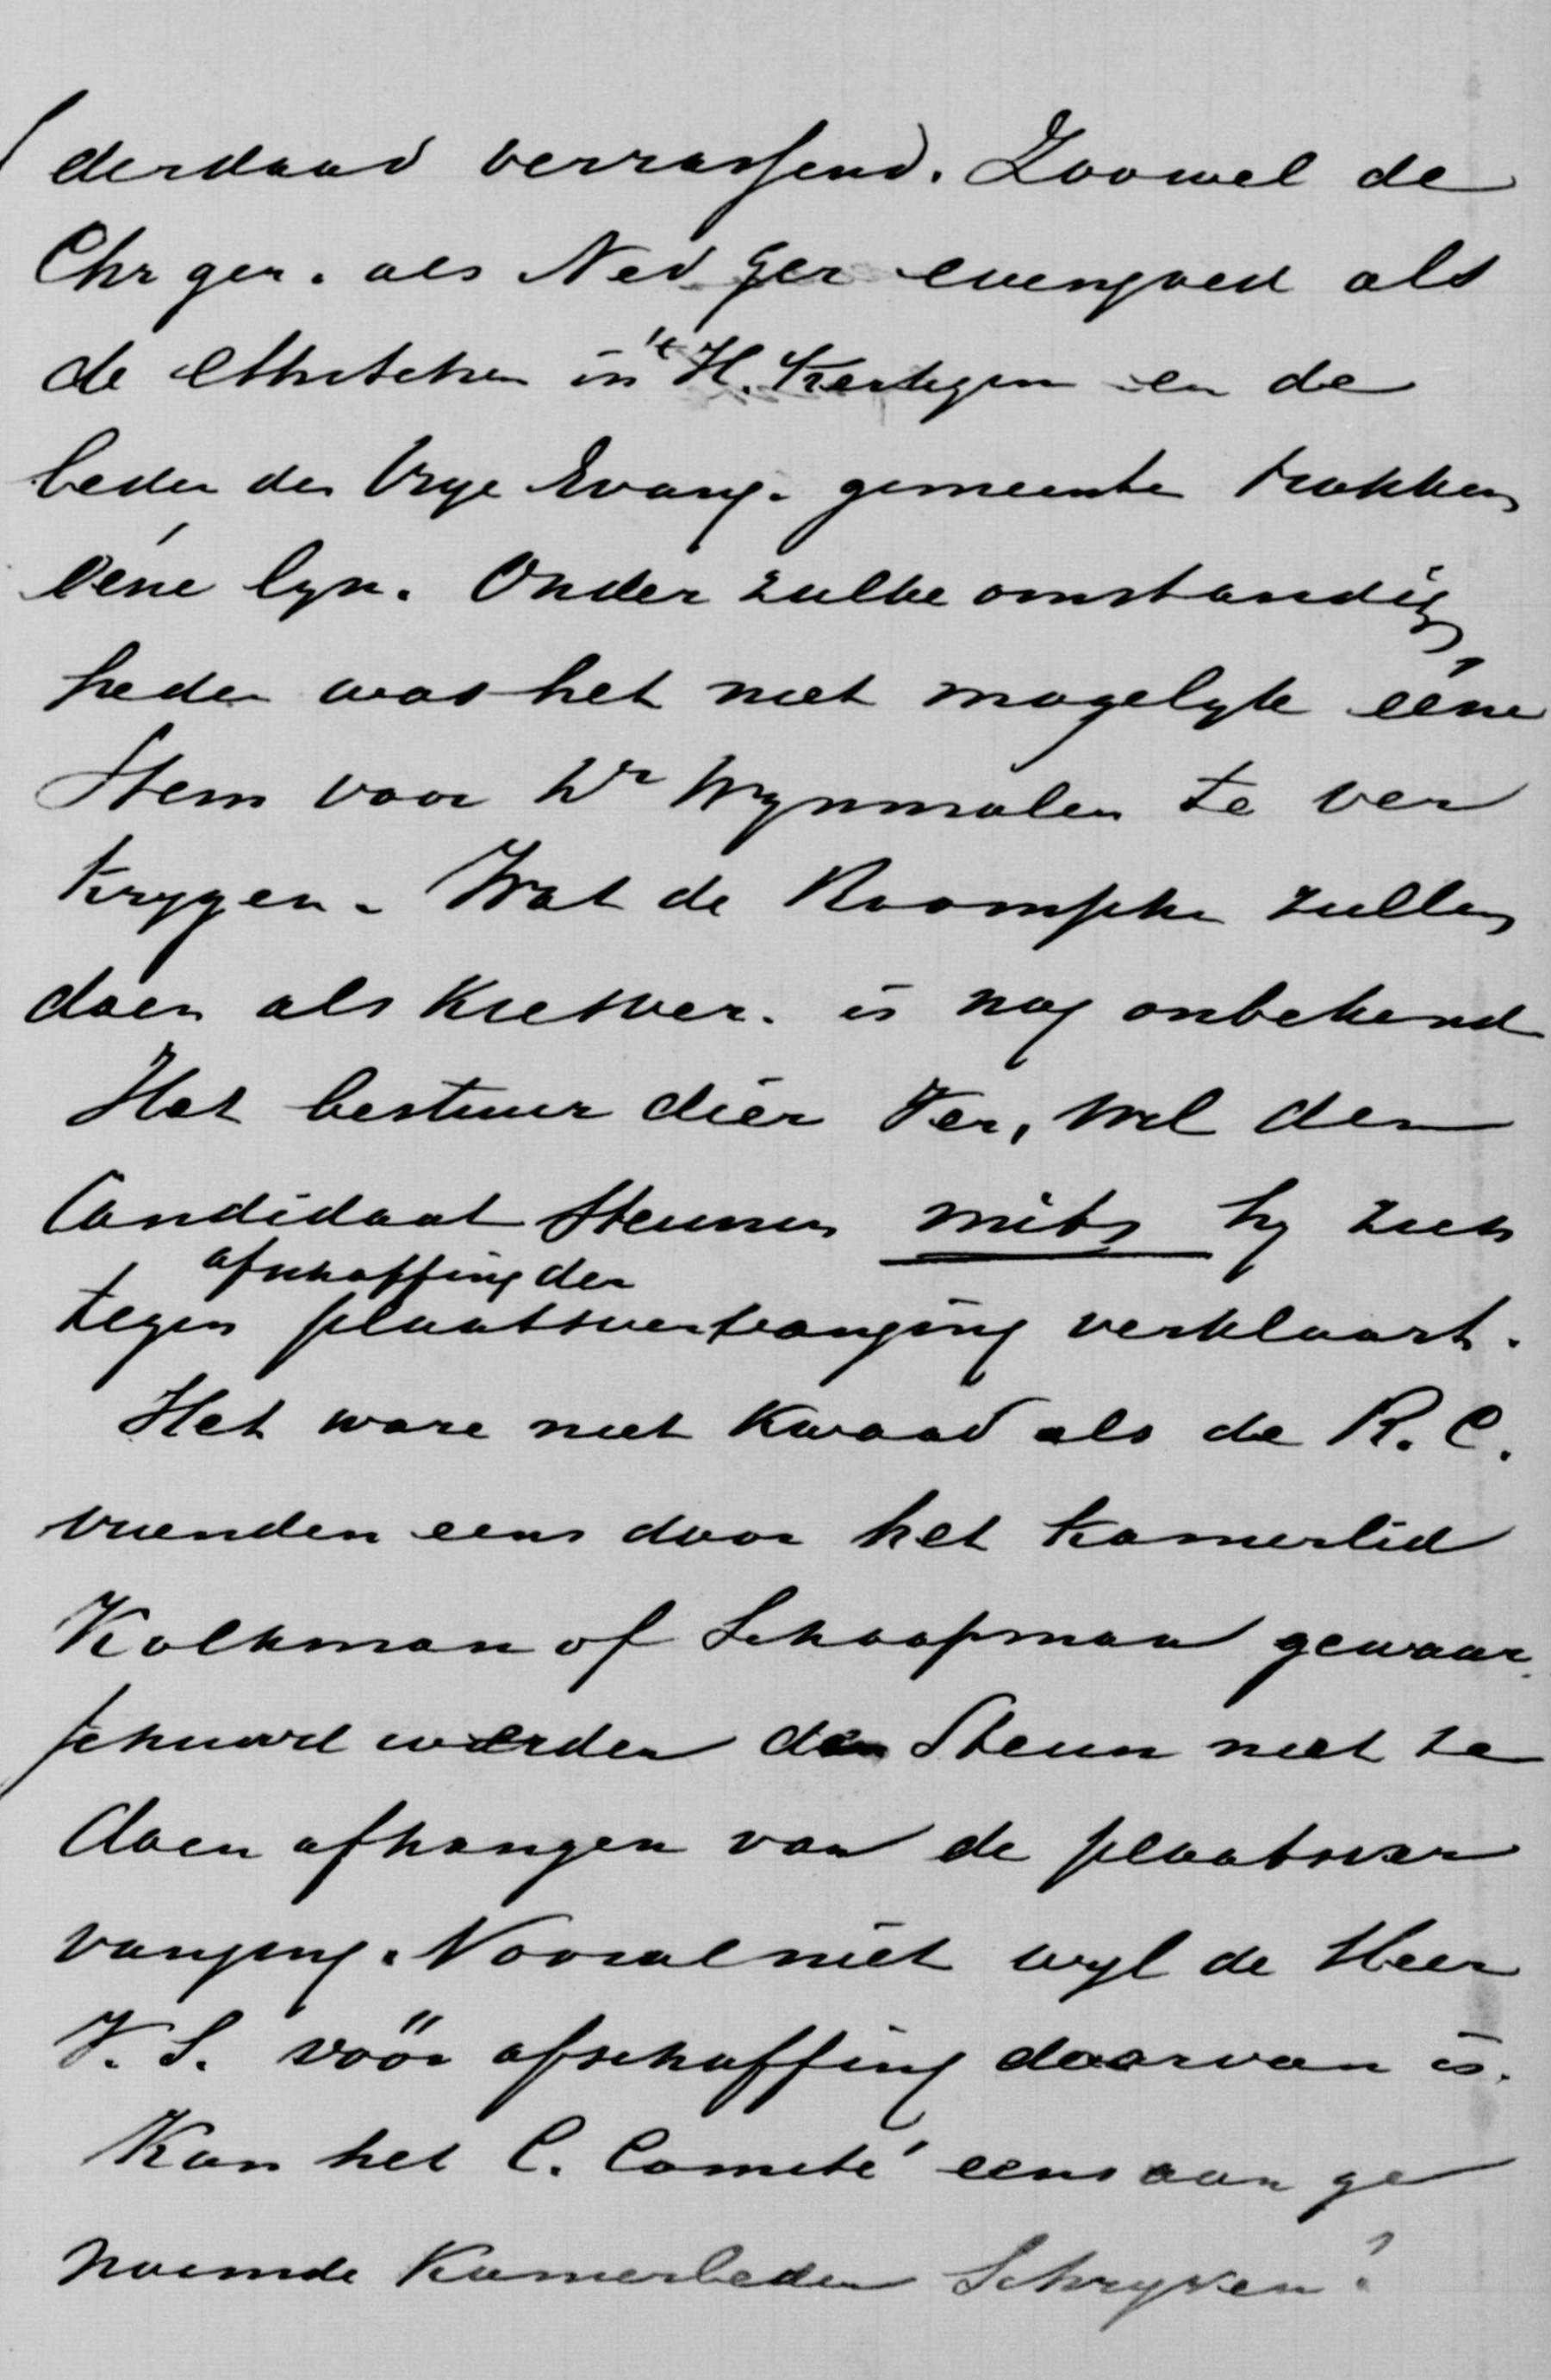 derdaad verrassend. Zoowel de
Chr ger. als Ned Ger evengoed als
de Ethischen in 't H. en de
leden der Vrye Evang. gemeente trokken
ééne lyn. Onder zulke omstandig
heden was het niet mogelyk ééne
Stem voor Wynmalen te ver
krygen. Wat de Roomsche zullen
doen als Kiesver. is nog onbekend
Het bestuur dier Ver, wil den
Candidaat Steunen mits hy zich
tegen afschaffing der plaatsvervanging verklaart.
Het ware niet Kwaad als de R. C.
vrienden eens door het Kamerlid
Kolkman of Schaapman gewaar
schuwd werden den Steun niet te
doen afhangen van de plaatsver
vanging. Vooral niet wyl de Heer
V. S. vöör afschaffing daarvan is.
Kan het C. Comité eens aan ge
noemde Kamerleden Schryven?